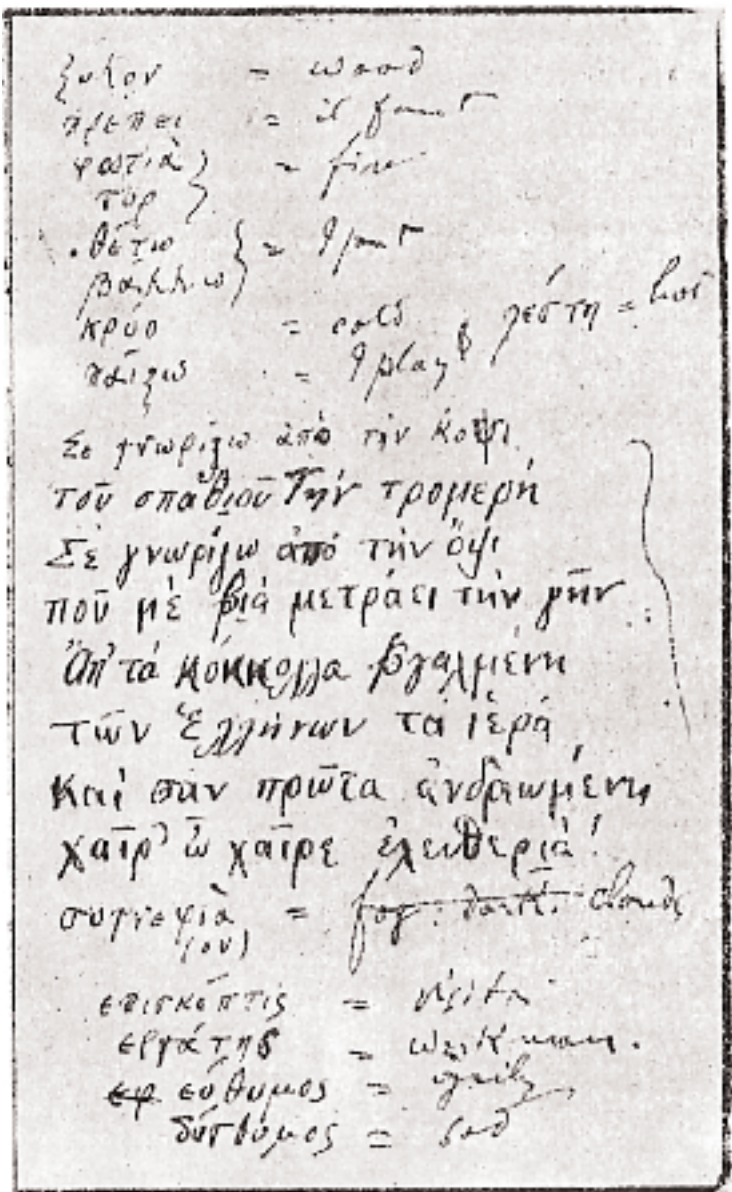 ξυλον = wood
πρεπει =
φωτιὰ } = fire
πυρ
θέτω } = I put
βαλλω
κρύο = cold
ζέστη = hot
παίζω = I play
Σε γνωρίζω ἀπὸ τὴν κοψι
τοῦ σπαθιοῦ Τὴν τρομερὴ
Σὲ γνωρίζω ἀπό τὴν ὄψι
ποῦ μὲ βιὰ μετράει τὴν γῆν
Ἀπ' τὰ κόκκολλα βγαλμένη
τῶν Ἑλλήνων τὰ ἱερὰ
Καὶ σαν πρῶτα ἀνδρωμένη
χαῖρ' ὦ χαῖρε ἐλευθεριὰ!
συγνεφιὰ = fog. clouds
(ον)
επισκέπτις =
εργάτης = workman.
εφ εύθυμος =
δύσθυμος = sad